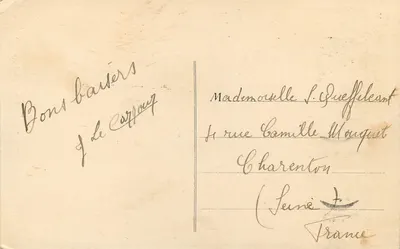 Bons baisers
J Le Carrour
Mademoiselle S. Quefféleant
4 rue Camille Mouquet
Charenton
(Seine)
France